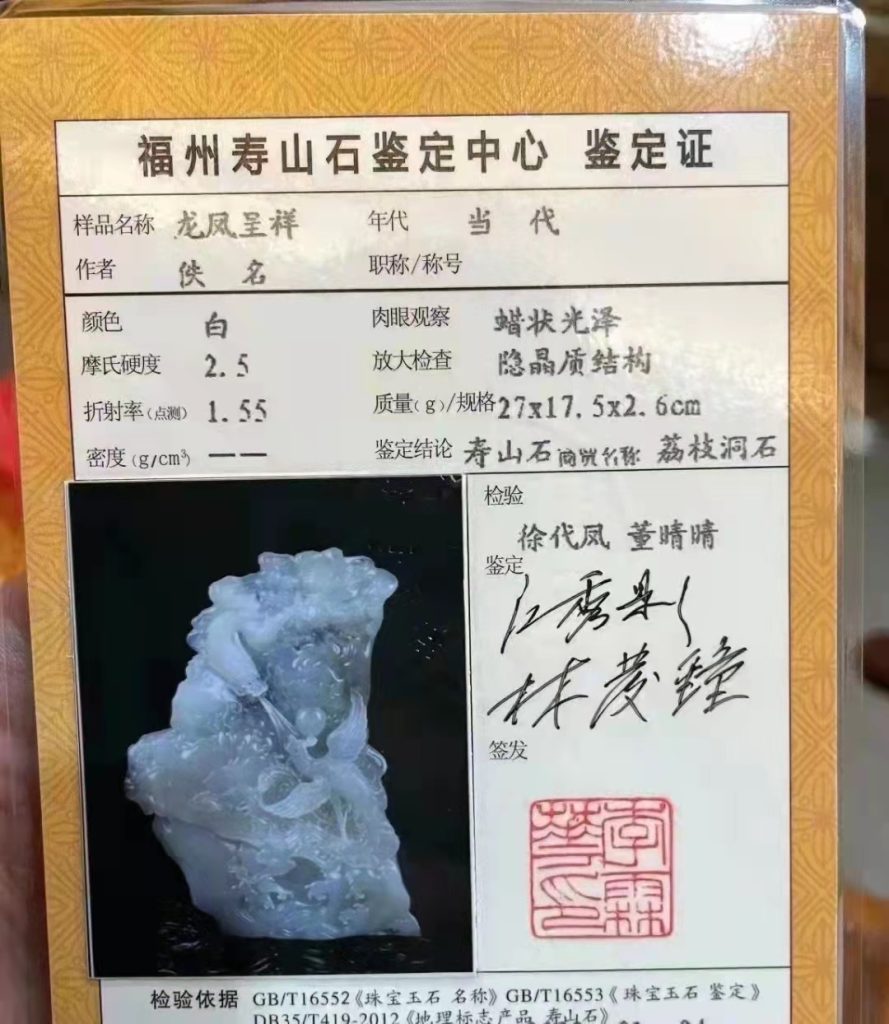 福州寿山石鉴定中心 鉴定证
样品名称 龙凤呈祥 年代 当代
作者 佚名 职称/称号
颜色 白 肉眼观察 蜡状光泽
摩氏硬度 2.5 放大检查 隐晶质结构
折射率(点测) 1.55 质量(g)/规格 27x17.5x2.6cm
密度(g/cm³) —— 鉴定结论 寿山石 商贸名称 荔枝洞石
检验
徐代凤 董晴晴
鉴定
签发
检验依据 GB/T16552《珠宝玉石 名称》GB/T16553《珠宝玉石 鉴定》
DB35/T419-2012《地理标志产品 寿山石》